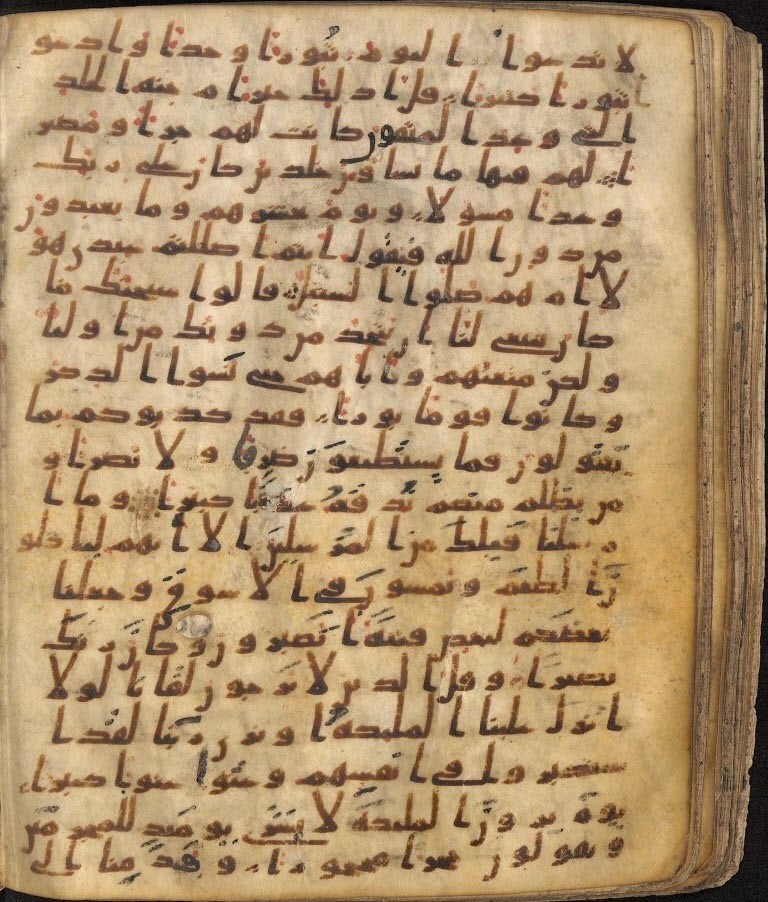 لا تدعوا اليوم ثبورا وحدا وادعو
ا ثبورا كثيرا قل اذلك خير ام جنه الخلد
التي وعد المتقون كانت لهم جزا ومصير
ا لهم فيها ما يشاون خلدين كان على ربك
وعدا مسولا ويوم نحشرهم وما يعبدون
من دون الله فيقول انتم اضللتم عبدي هو
لا ام هم ضلوا السبيل قالوا سبحنك ما
كان ينبغي لنا ان نتخذ من دونك من اوليا
ولكن متعتهم واباهم حتى نسوا الذكر
وكانوا قوما بورا فقد كذبوكم بما
تقولون فما يستطيعون صرفا ولا نصرا و
من يظلم منكم نذقه عذابا كبيرا وما ا
رسلنا قبلك من المرسلين الا انهم لياكلو
ن الطعم ويمشون في الاسوق وجعلنا
بعضكم لبعض فتنه اتصبرون وكان ربك
بصيرا وقال الذين لا يرجون لقانا لولا
انزل علينا الملئكه او نرى ربنا لقد ا
ستكبروا في انفسهم وعتوا عتوا كبيرا
يوم يرون الملئكه لا بشرى يومئذ للمجرمين
ويقولون حجرا محجورا وقدمنا الى